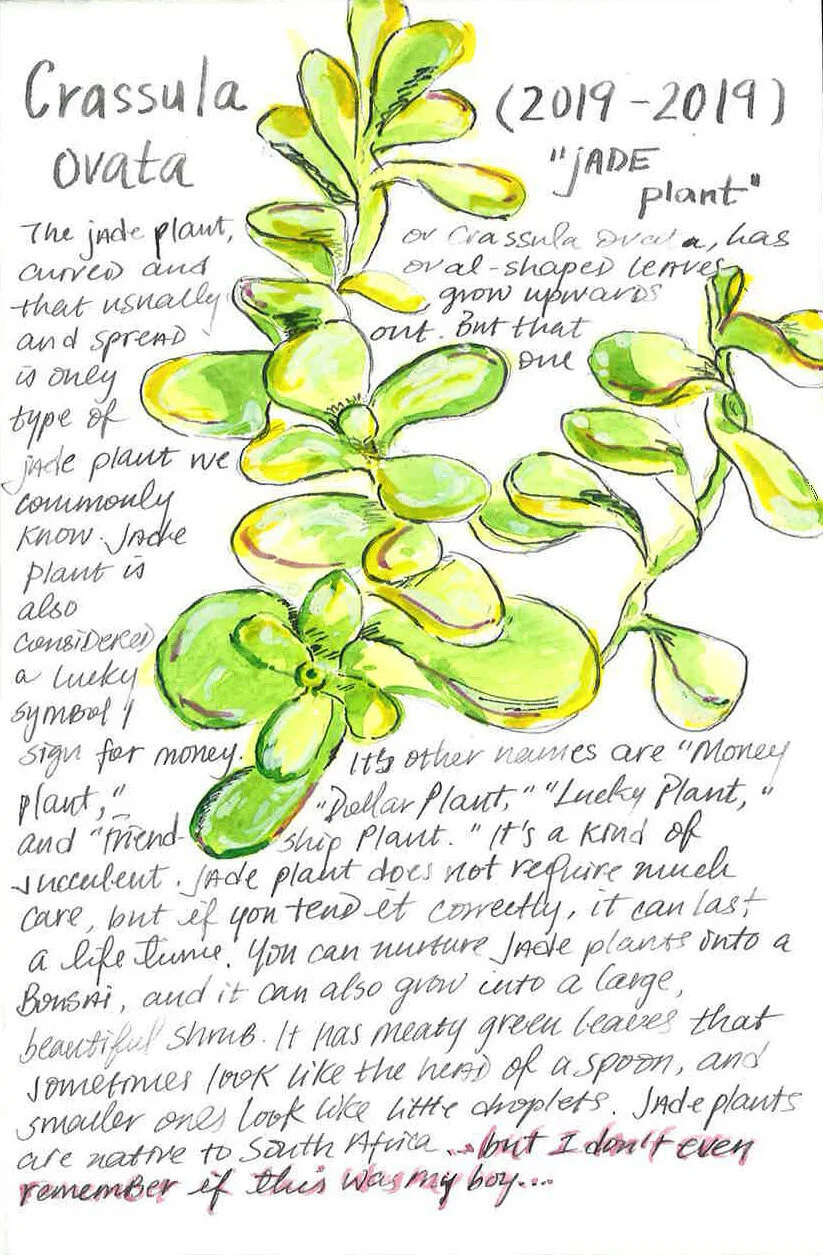 Crassula (2019-2019)
ovata "JADE
plant"
The jade plant, or Crassula ovata, has
curved and oval-shaped leaves
that usually grow upwards
and spread out. But that
is only one
type of
jade plant we
commonly
know. Jade
plant is
also
considered
a lucky
symbol /
sign for money. It's other names are "Money
plant," "Dollar Plant," "Lucky Plant,"
and "Friend- ship Plant." It's a kind of
succulent. Jade plant does not require much
care, but if you tend it correctly, it can last
a life time. You can nurture Jade plants into a
Bonsai, and it can also grow into a large,
beautiful shrub. It has meaty green leaves that
sometimes look like the head of a spoon, and
smaller ones look like little droplets. Jade plants
are native to South Africa... but I don't even
remember if this was my boy...